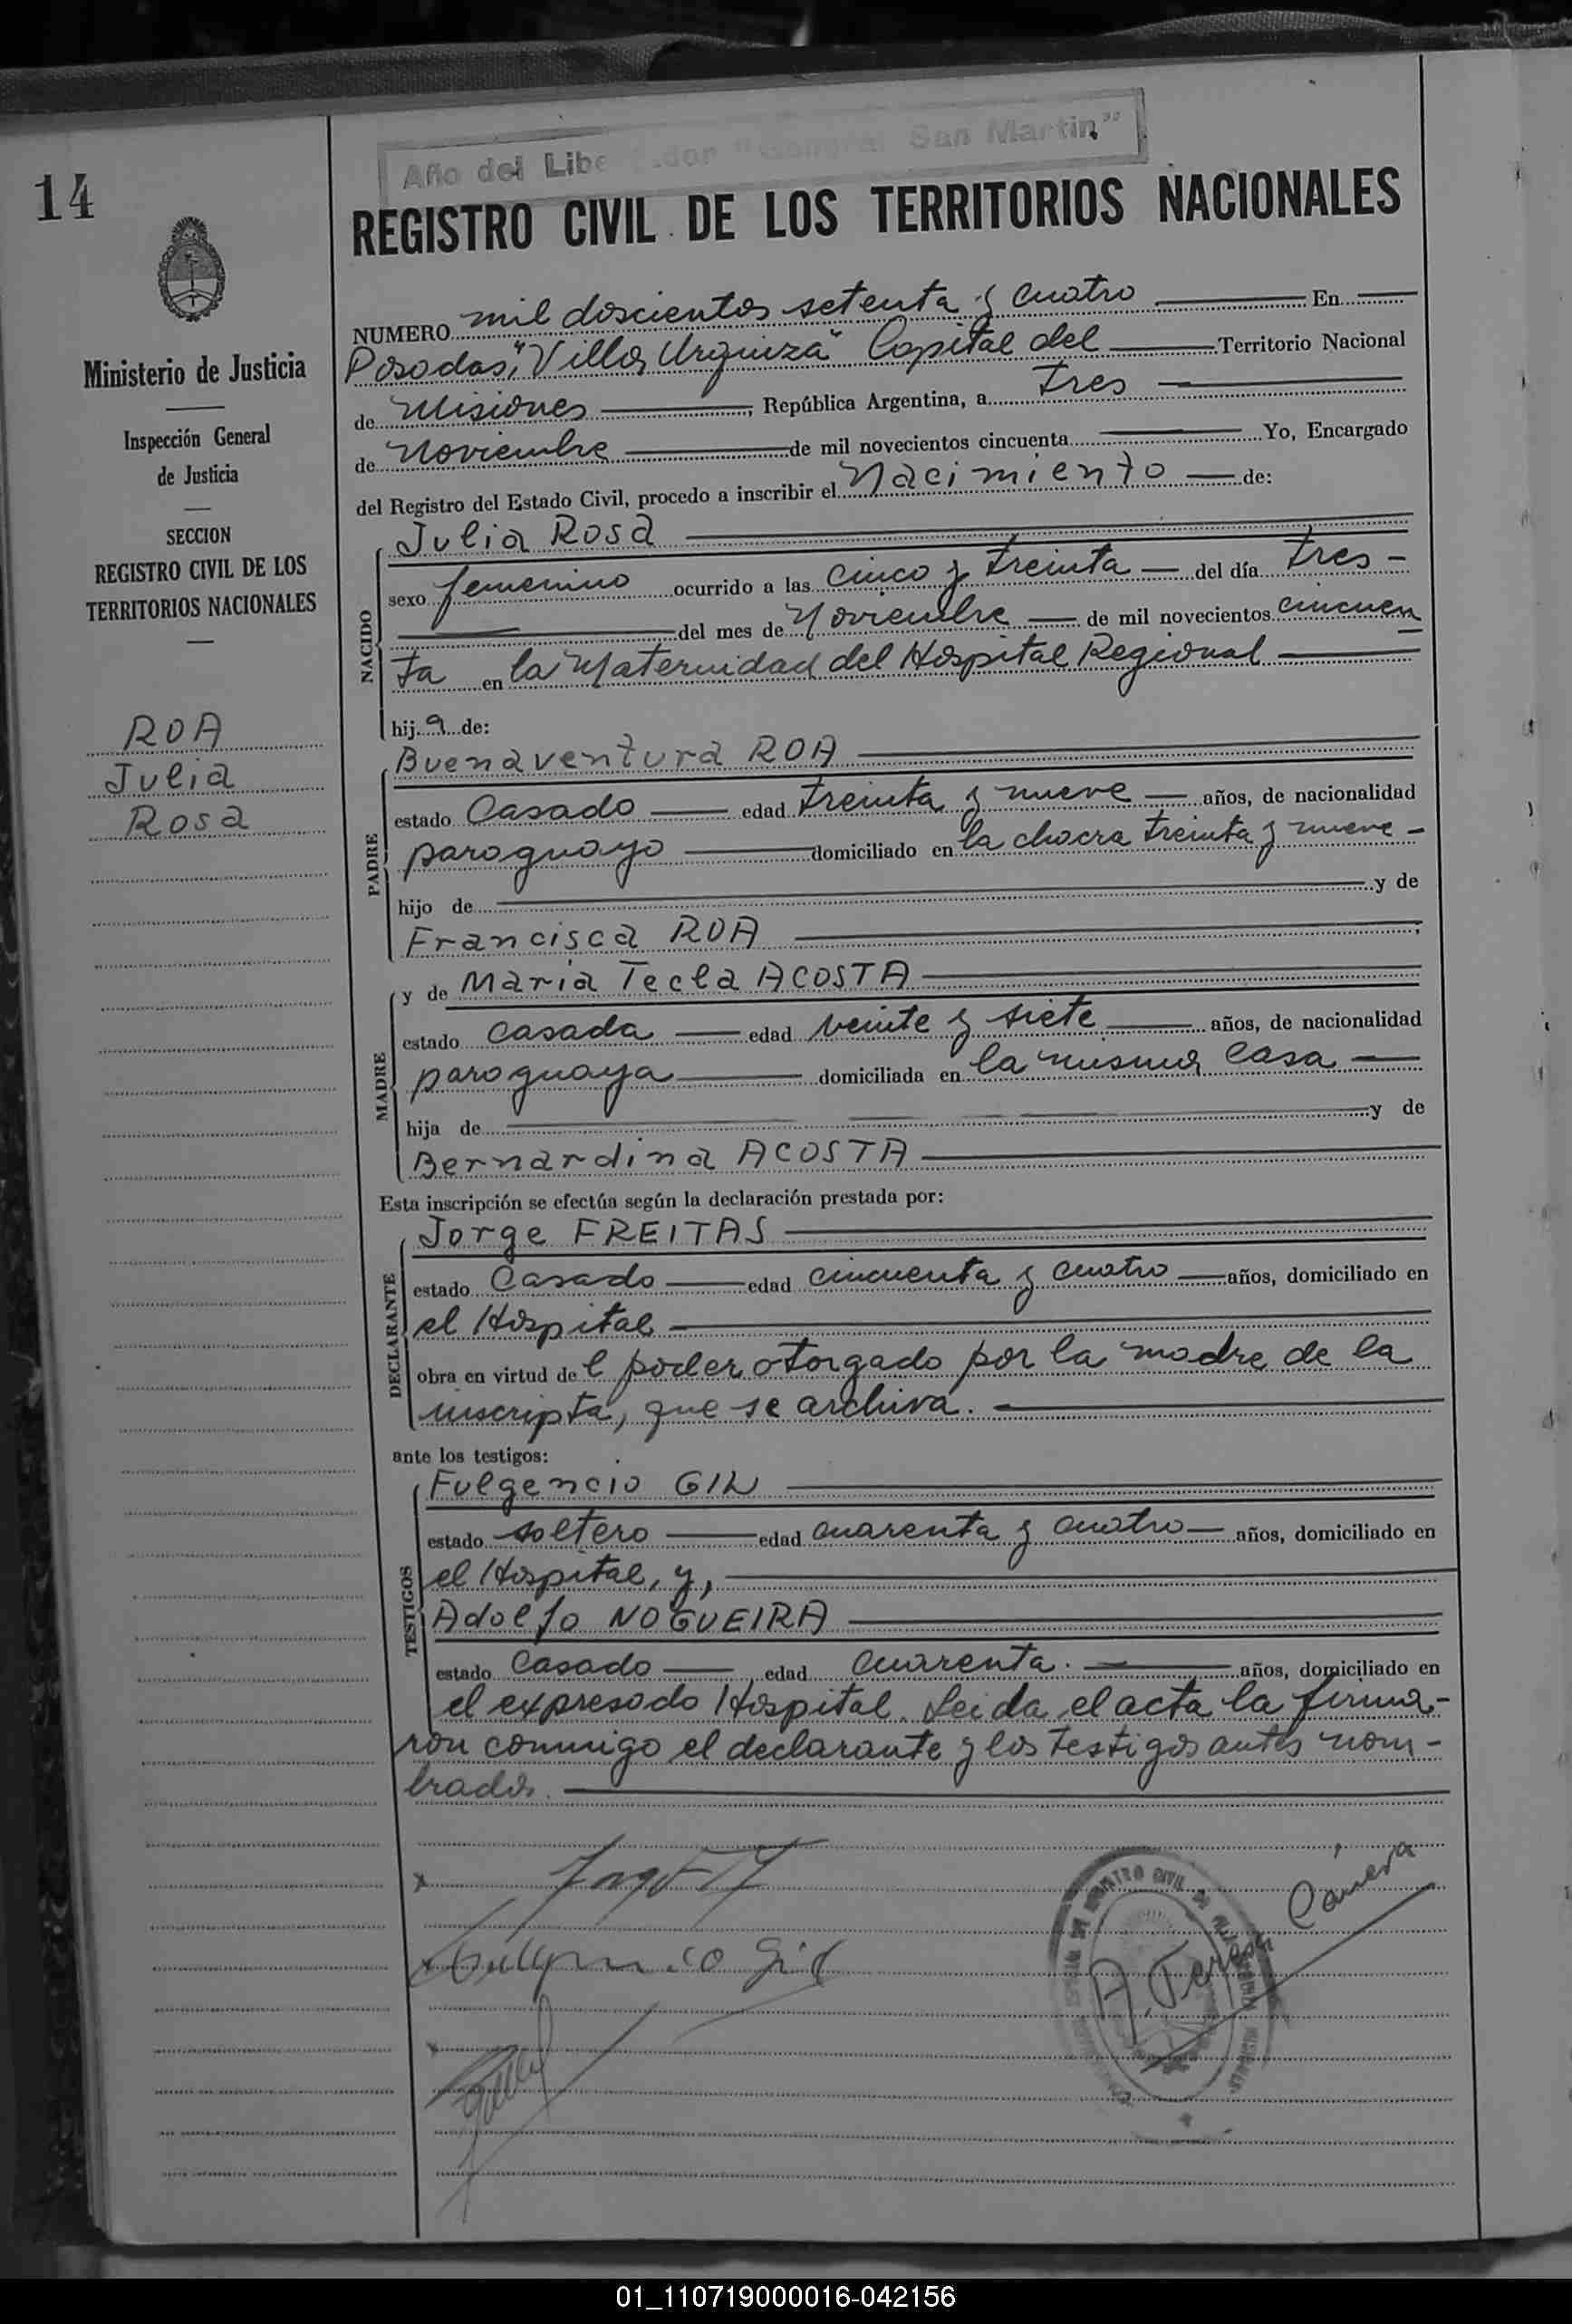 Año del Libertador "General San Martin"
14
REGISTRO CIVIL DE LOS TERRITORIOS NACIONALES
Ministerio de Justicia
Inspección General
de Justicia
SECCION
REGISTRO CIVIL DE LOS
TERRITORIOS NACIONALES
ROA
Julia
Rosa
NUMERO mil doscientos setenta y cuatro En
Posadas, "Villa Urquiza" Capital del Territorio Nacional
de Misiones, República Argentina, a tres
de Noviembre de mil novecientos cincuenta Yo, Encargado
del Registro del Estado Civil, procedo a inscribir el Nacimiento de:
NACIDO
Julia Rosa
sexo femenino ocurrido a las cinco y treinta del día tres
del mes de Noviembre de mil novecientos cincuen
ta en la Maternidad del Hospital Regional
hija de:
PADRE
Buenaventura ROA
estado Casado edad treinta y nueve años, de nacionalidad
paraguayo domiciliado en la chacra treinta y nueve
hijo de y de
Francisca ROA
MADRE
y de Maria Tecla ACOSTA
estado casada edad veinte y siete años, de nacionalidad
paraguaya domiciliada en la misma casa
hija de y de
Bernardina ACOSTA
Esta inscripción se efectúa según la declaración prestada por:
DECLARANTE
Jorge FREITAS
estado Casado edad cincuenta y cuatro años, domiciliado en
el Hospital
obra en virtud del poder otorgado por la madre de la
inscripta, que se archiva.
ante los testigos:
TESTIGOS
Fulgencio GIL
estado soltero edad cuarenta y cuatro años, domiciliado en
el Hospital, y,
Adolfo NOGUEIRA
estado Casado edad cuarenta. años, domiciliado en
el expresado Hospital. Leida el acta la firma-
ron conmigo el declarante y los testigos antes nom-
brados.
Fulgencio Gil
01_110719000016-042156